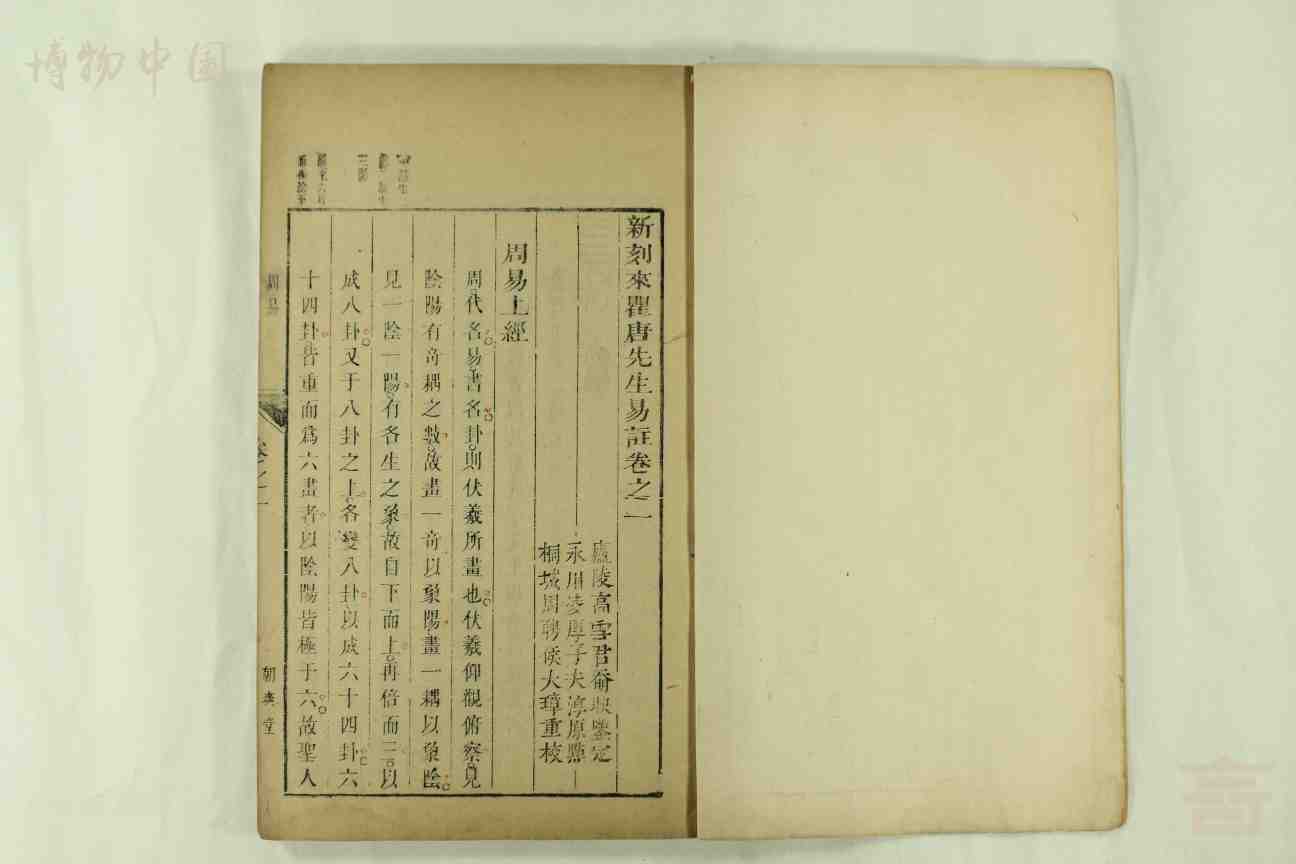 博物中國
新刻來瞿唐先生易註卷之一
廬陵高雪君裔映鑒定
永川凌厚子夫淳原點
桐城周聘侯大璋重校
周易上經
周代名易書名卦則伏羲所畫也伏羲仰觀俯察見
陰陽有奇耦之數故畫一奇以象陽畫一耦以象陰
見一陰一陽有各生之象故自下而上再倍而三以
成八卦又于八卦之上各變八卦以成六十四卦六
十四卦皆重而爲六畫者以陰陽皆極于六故聖人
周易
卷之一
朝爽堂